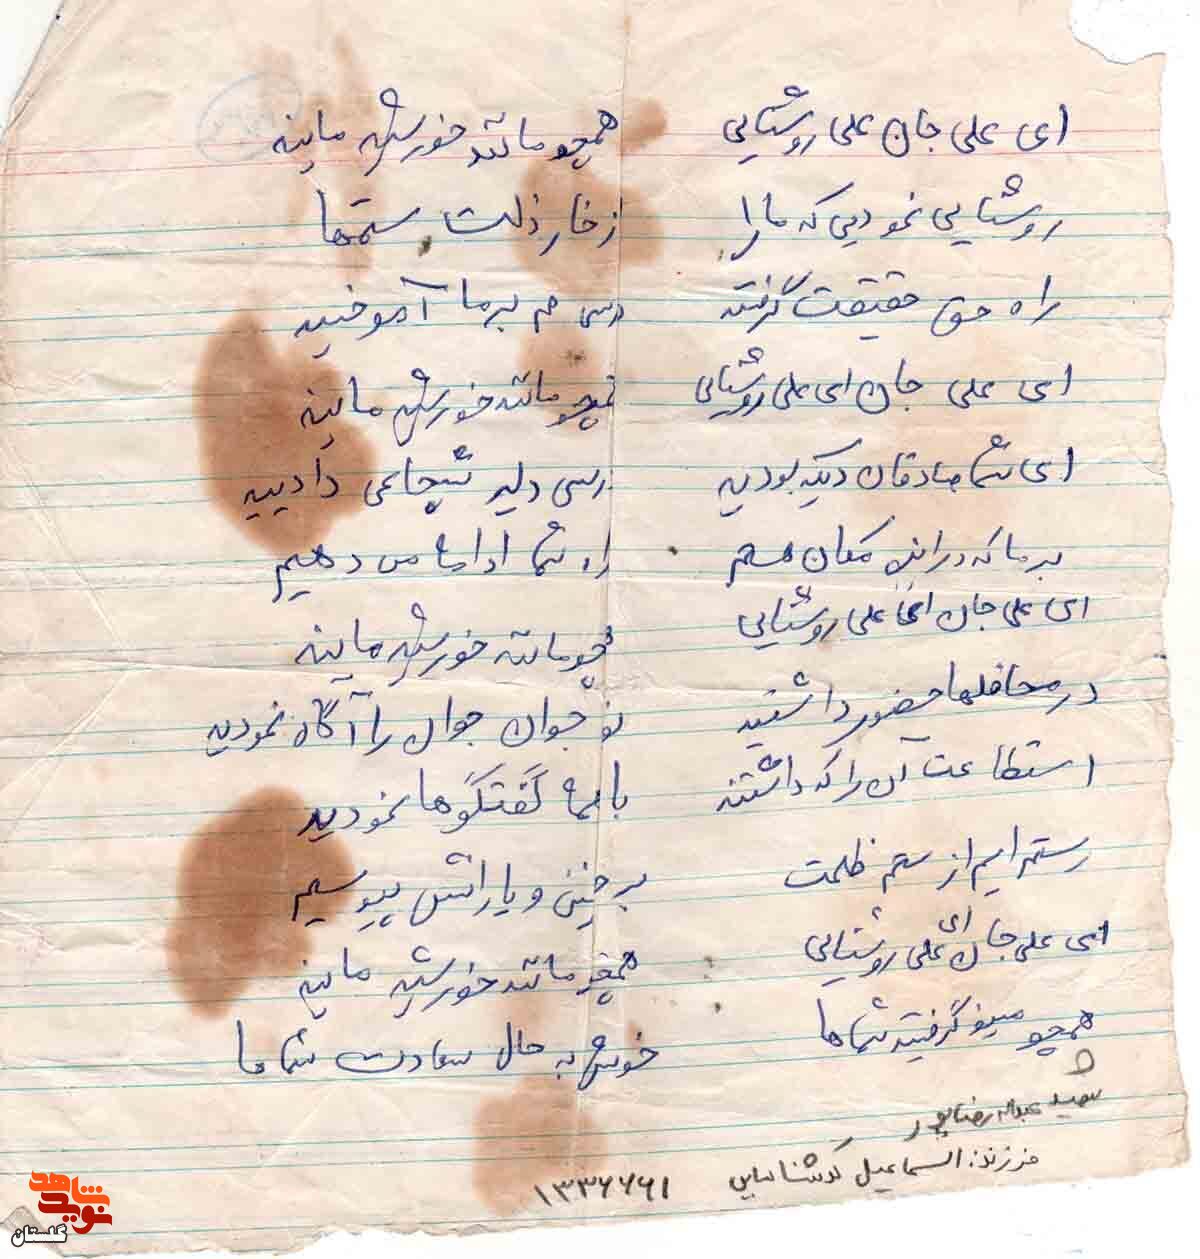 ای علی جان علی روشنایی همچو مانند خورشید مانید
روشنایی نمودیی که ما را از خار ذلت ستمها
راه حق حقیقت گرفتید درسی هم بر ما آموختید
ای علی جان ای علی روشنایی همچو مانند خورشید مانید
ای شما صادقان دیگه بودید درسی دلیر شجاعی دادیید
بر ما که در این مکان هستیم راه شما ادامه می دهیم
ای علی جان ای علی روشنایی همچو مانند خورشید مانید
در محافلها حضور داشتید نوجوان جوان را آگاه نمودید
استطاعت آن را که داشتند با شما گفتگوها نمودید
رستم ایم از ستم ظلمت بر خمینی و یارانش پیوستیم
ای علی جان ای علی روشنایی همچو مانند خورشید مانید
همچو گرفتید شماها خوش به حال سعادت شماها
شهید عبداله رضاپور
فرزند: اسماعیل ۱۳۳۶۶۶۱
نوید شاهد
گلستان